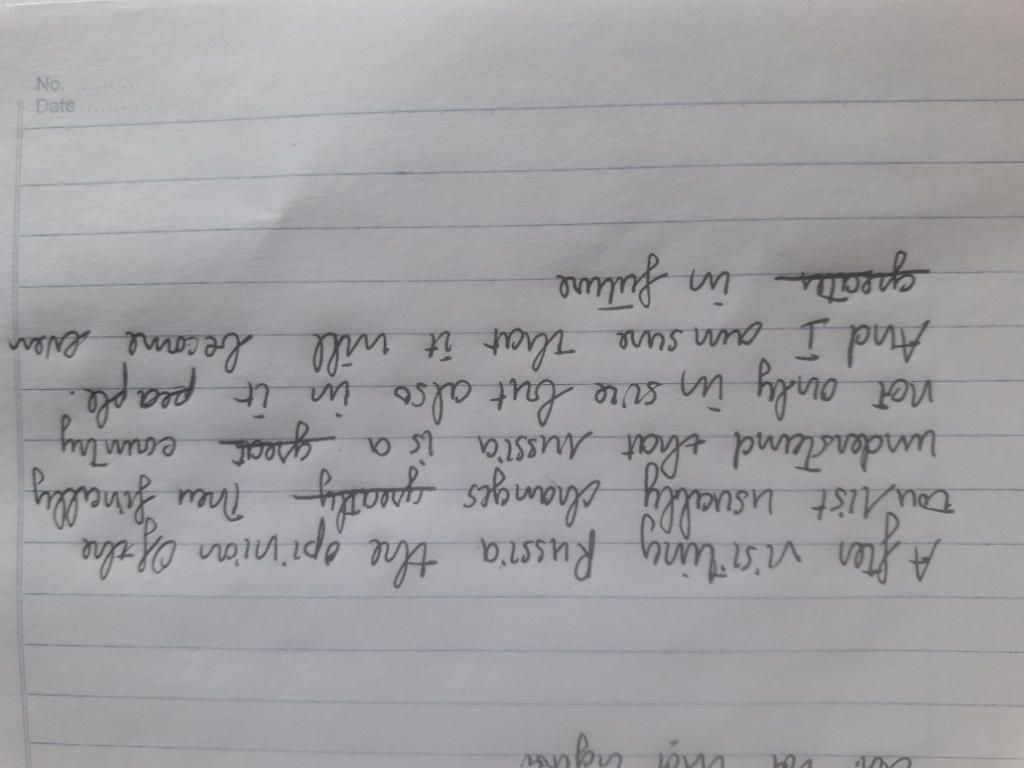 No.
Date
và mọi người
After visiting Russia the opinion Of the
tourist usually changes greatly They finally
understand that russia is a great country
not only in size but also in it people.
And I am sure that it will become even
greater in future